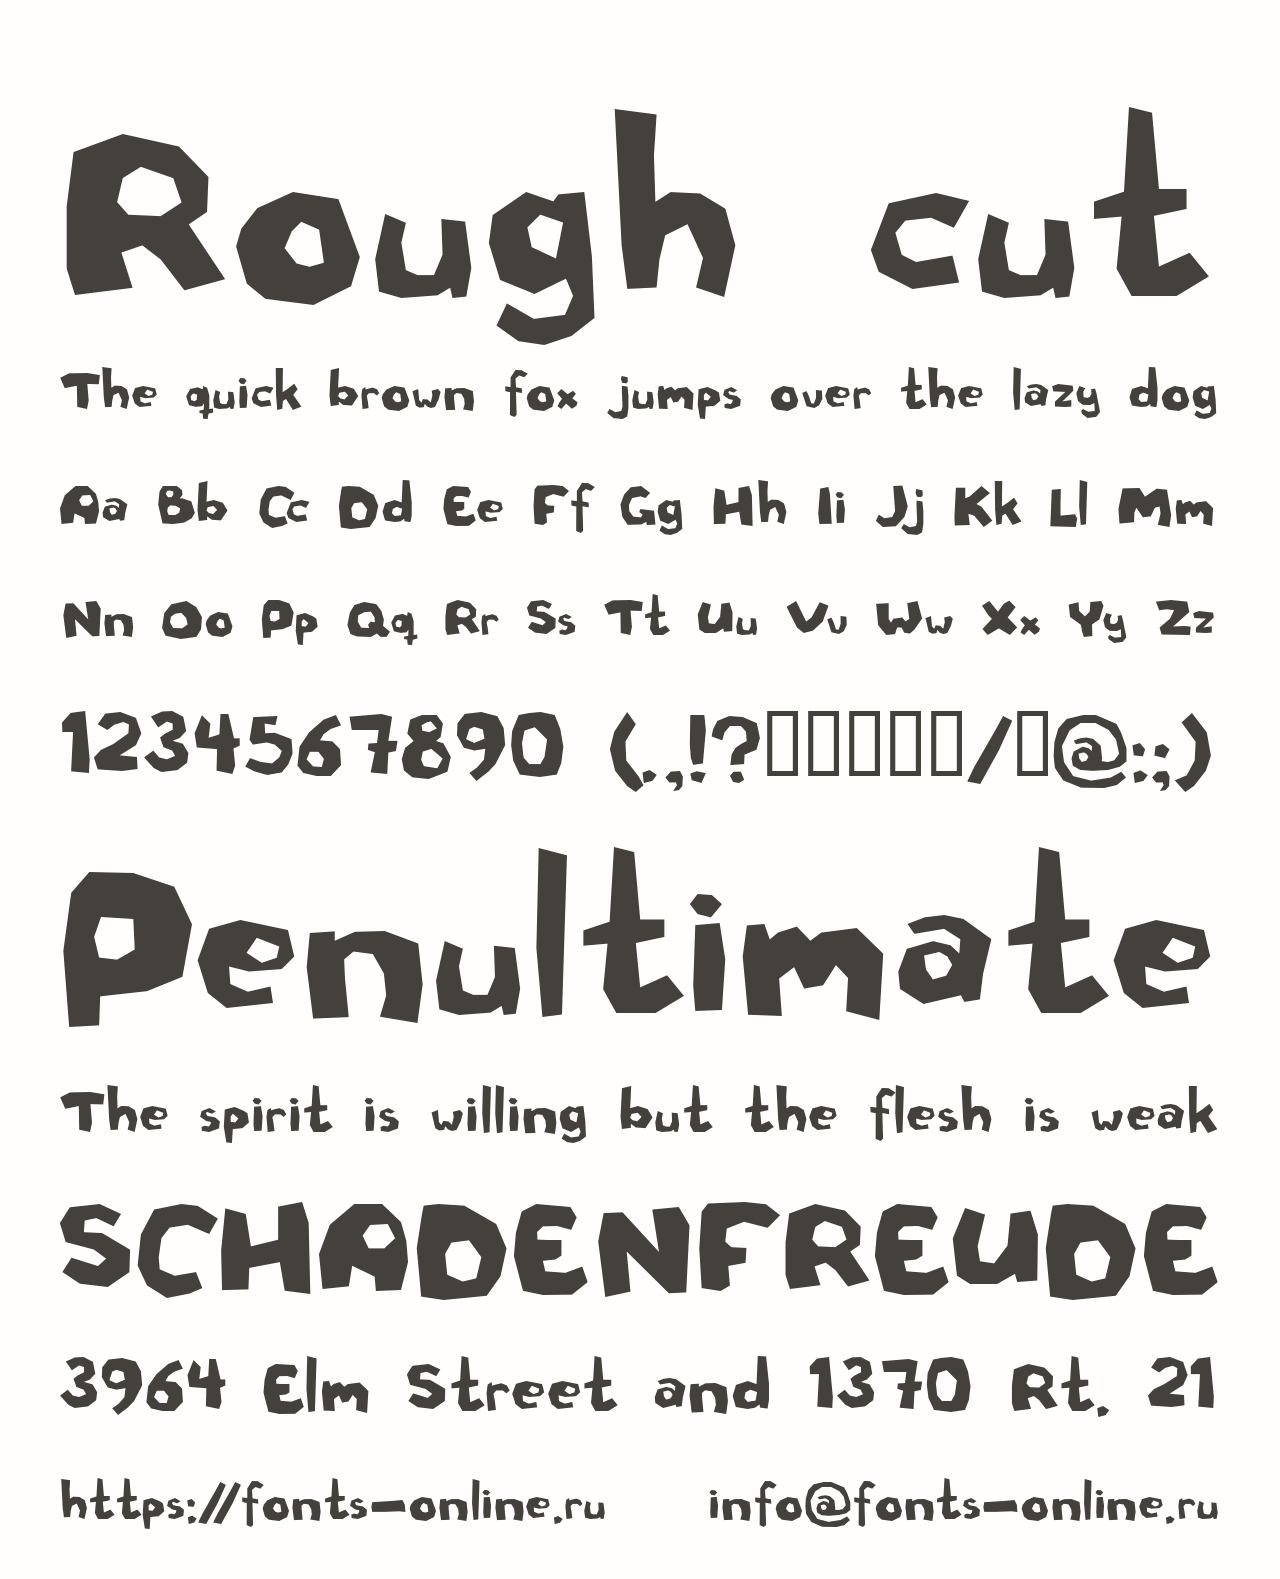 Rough cut
The quick brown fox jumps over the lazy dog
Aa Bb Cc Dd Ee Ff Gg Hh Ii Jj Kk Ll Mm
Nn Oo Pp Qq Rr Ss Tt Uu Vv Ww Xx Yy Zz
1234567890 (.,!?▯▯▯▯▯/▯@:;)
Penultimate
The spirit is willing but the flesh is weak
SCHADENFREUDE
3964 Elm Street and 1370 Rt. 21
https://fonts-online.ru info@fonts-online.ru